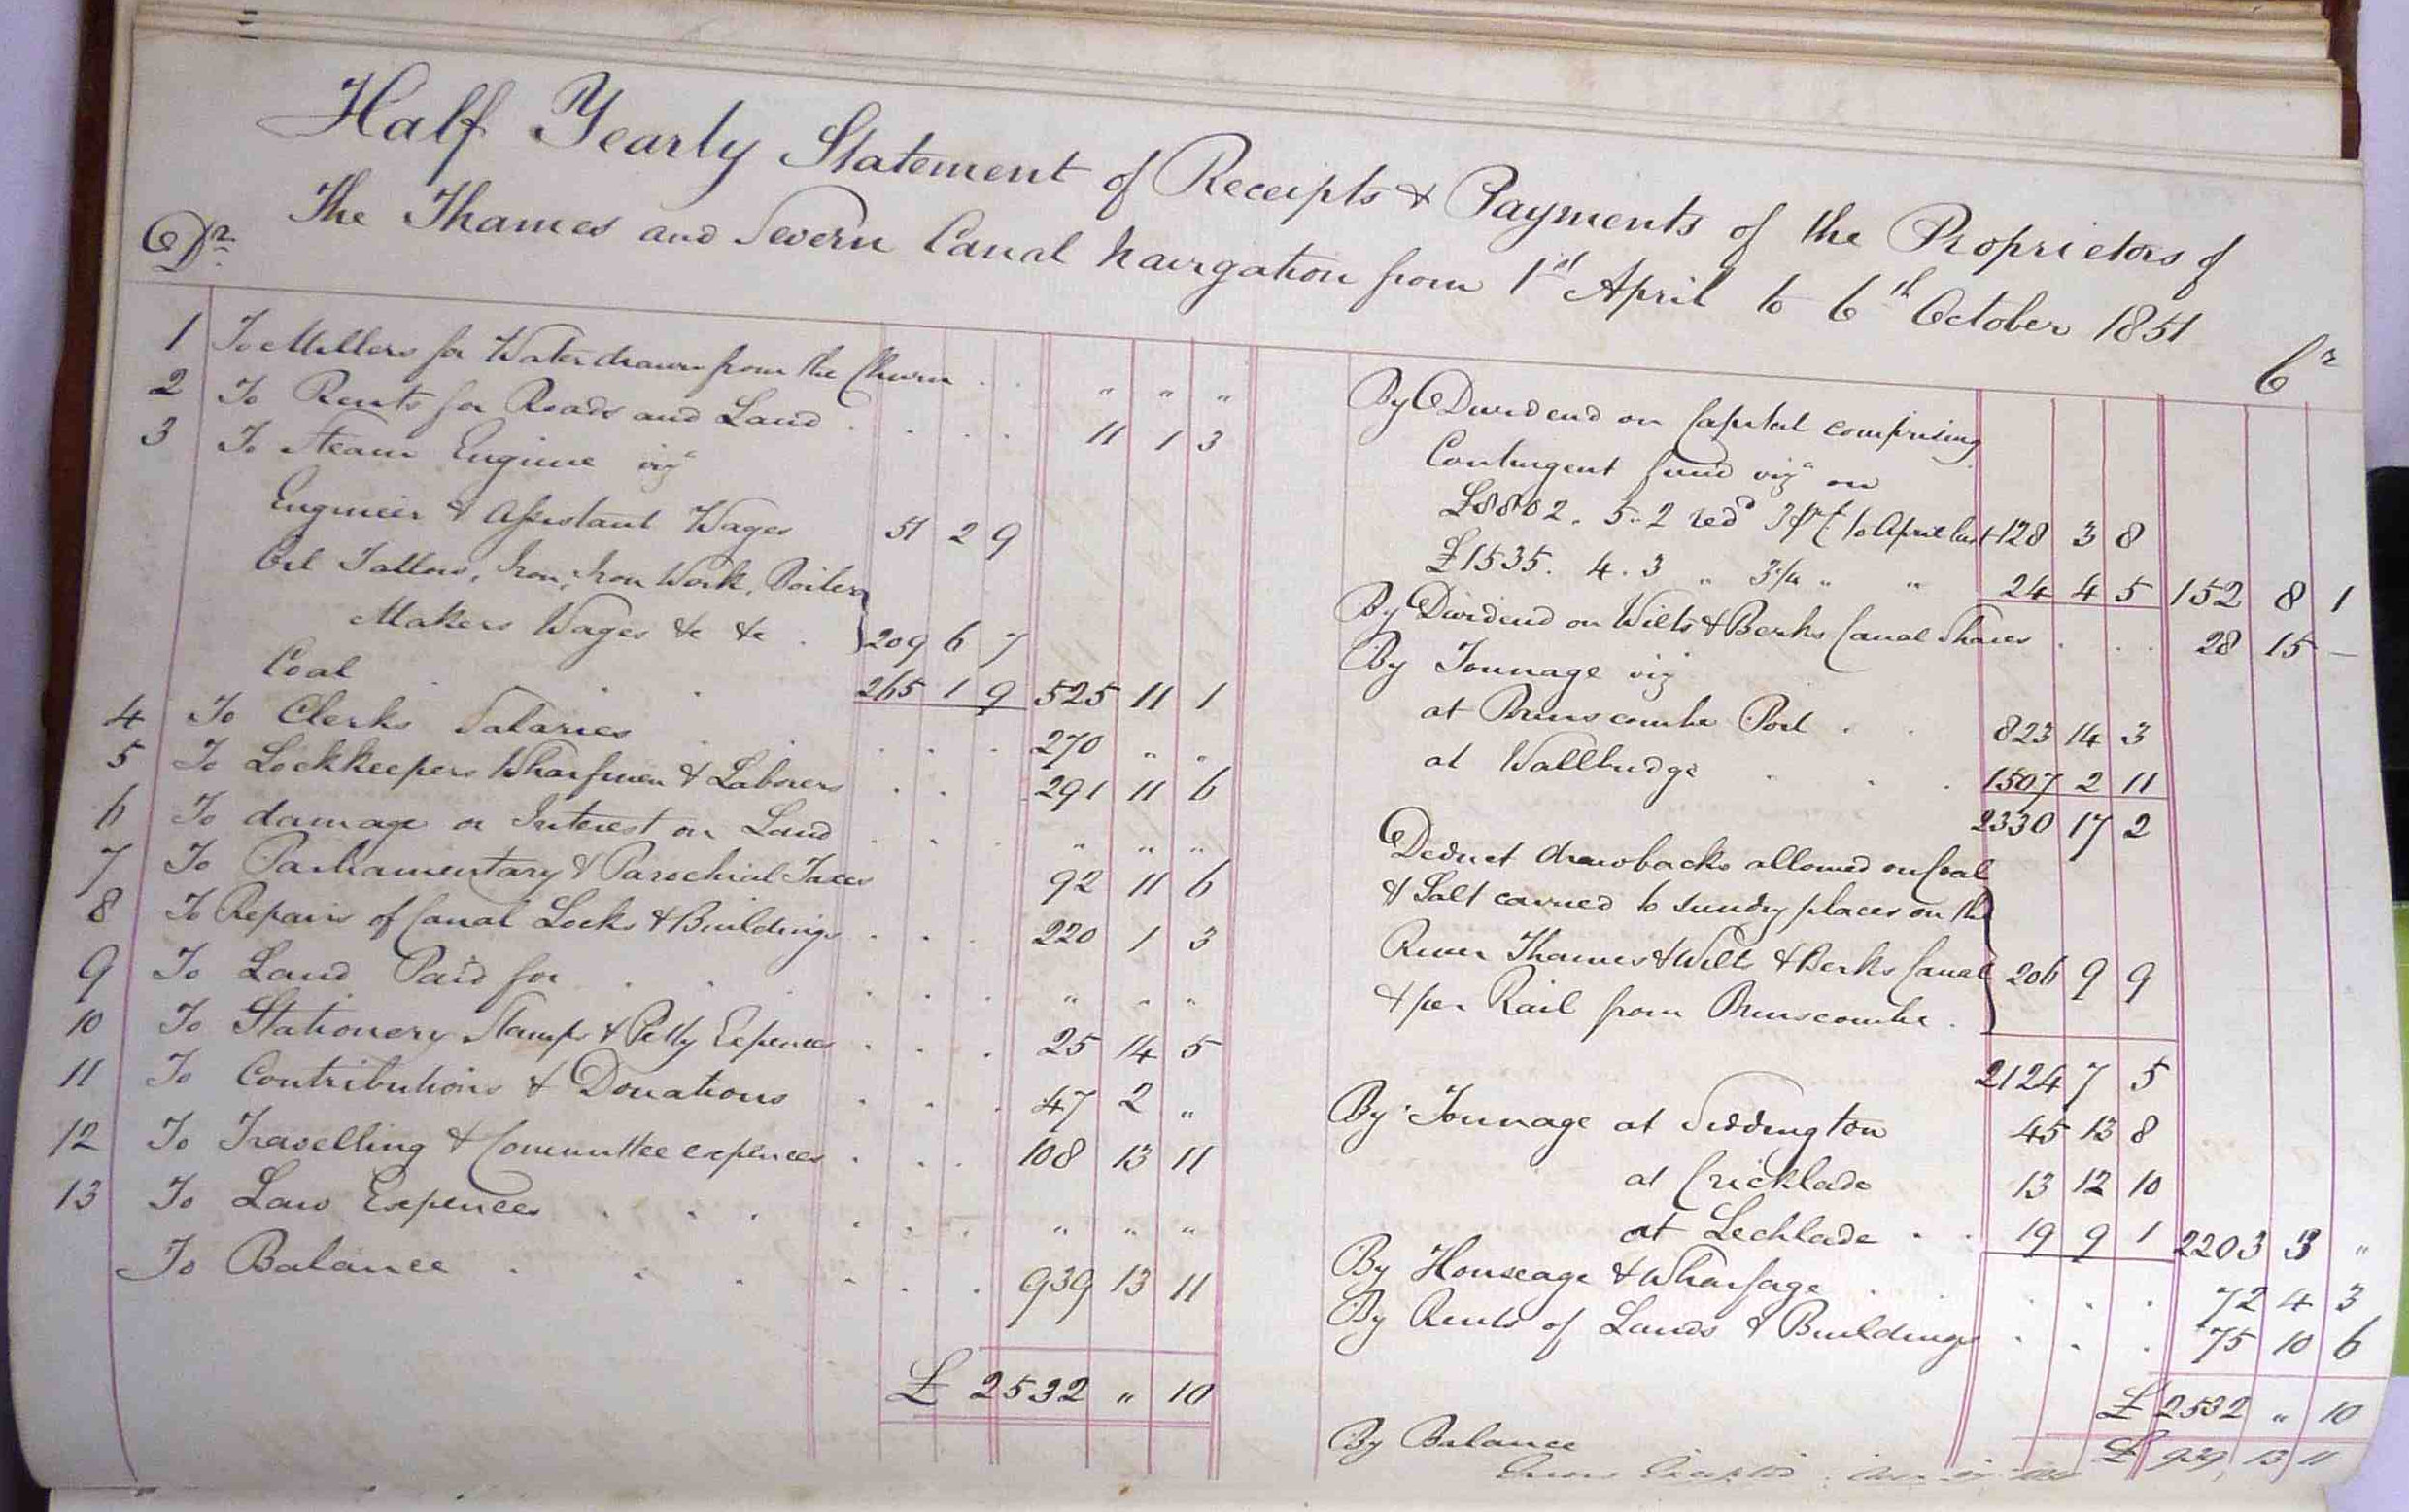 Half Yearly Statement of Receipts & Payments of the Proprietors of
The Thames and Severn Canal Navigation from 1st April to 6th October 1851
Dr.
1 To Millers for Water drawn from the Churn . . " " "
2 To Rents for Roads and Land . . . . 11 1 3
3 To Steam Engine viz
Engineer & Assistant Wages 51 2 9
Oil Tallow, Iron, Iron Work, Boiler
Makers Wages &c &c . 209 6 7
Coal . . . 265 1 9 525 11 1
4 To Clerks Salaries . . . . . 270 " "
5 To Lockkeepers Wharfmen & Laborers . . . 291 11 6
6 To damage or Interest on Land . . . . " " "
7 To Parliamentary & Parochial Taxes 92 11 6
8 To Repairs of Canal Locks & Buildings . . . 220 1 3
9 To Land Paid for . . . . . . " " "
10 To Stationery Stamps & Petty Expences . . . 25 14 5
11 To Contributions & Donations . . . 47 2 "
12 To Travelling & Committee expences . . . 108 13 11
13 To Law Expences . . . . . . " " "
To Balance . . . . . . 939 13 11
£ 2532 " 10
Cr
By Dividend on Capital comprising
Contingent fund viz on
£8802. 5. 2 red 3 pr Ct to April last 128 3 8
£1535. 4. 3 " 3¼ " " 24 4 5 152 8 1
By Dividend on Wilts & Berks Canal Shares . . . 28 15 —
By Tonnage viz
at Brimscombe Port . . 823 14 3
at Wallbridge . . . 1507 2 11
2330 17 2
Deduct drawbacks allowed on Coal
& Salt carried to sundry places on the
River Thames & Wilts & Berks Canal 206 9 9
& per Rail from Brimscombe .
2124 7 5
By Tonnage at Siddington 45 13 8
at Cricklade 13 12 10
at Lechlade . . 19 9 1 2203 3 "
By Houseage & Wharfage . . . . . 72 4 3
By Rents of Lands & Buildings . . . 75 10 6
£ 2532 " 10
By Balance £ 939 13 11